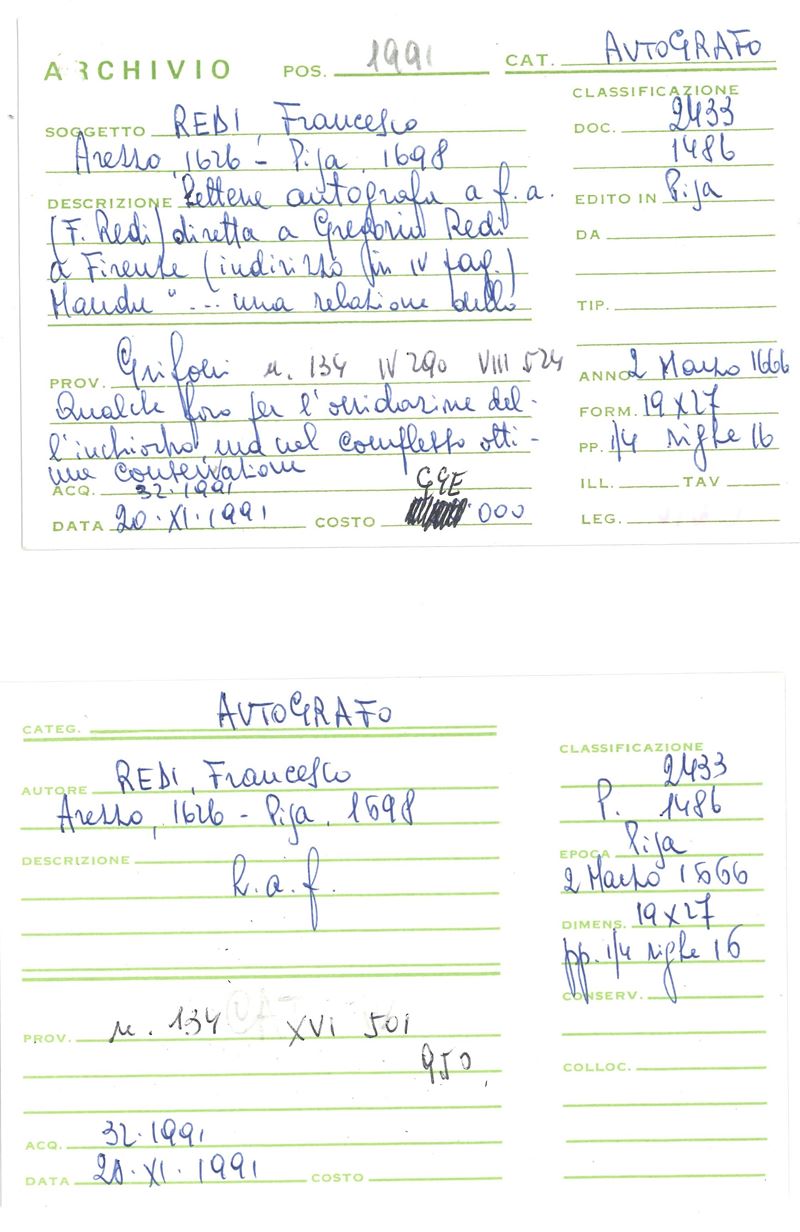 ARCHIVIO POS. 1991 CAT. AUTOGRAFO
CLASSIFICAZIONE
SOGGETTO REDI, Francesco DOC. 2433
Arezzo, 1626 - Pisa, 1698 1486
DESCRIZIONE Lettera autografa a f.a. EDITO IN Pisa
(F. Redi) diretta a Gregorio Redi DA
a Firenze (indirizzo in IV pag.)
Manda "... una relazione dello TIP.
PROV. Grifoni n. 134 IV 290 VIII 524 ANNO 2 Marzo 1666
Qualche foro per l'ossidazione del- FORM. 19 x 27
l'inchiostro, ma nel complesso otti- PP. 1/4 righe 16
ma conservazione
ACQ. 32.1991 GGE ILL. TAV
DATA 20.XI.1991 COSTO .000 LEG.
CATEG. AUTOGRAFO
CLASSIFICAZIONE
AUTORE REDI, Francesco 2433
Arezzo, 1626 - Pisa, 1698 P. 1486
DESCRIZIONE L.a.f. EPOCA Pisa
2 Marzo 1666
DIMENS. 19 x 27
pp. 1/4 righe 16
CONSERV.
PROV. n. 134 XVI 501
950 COLLOC.
ACQ. 32.1991
DATA 20.XI.1991 COSTO